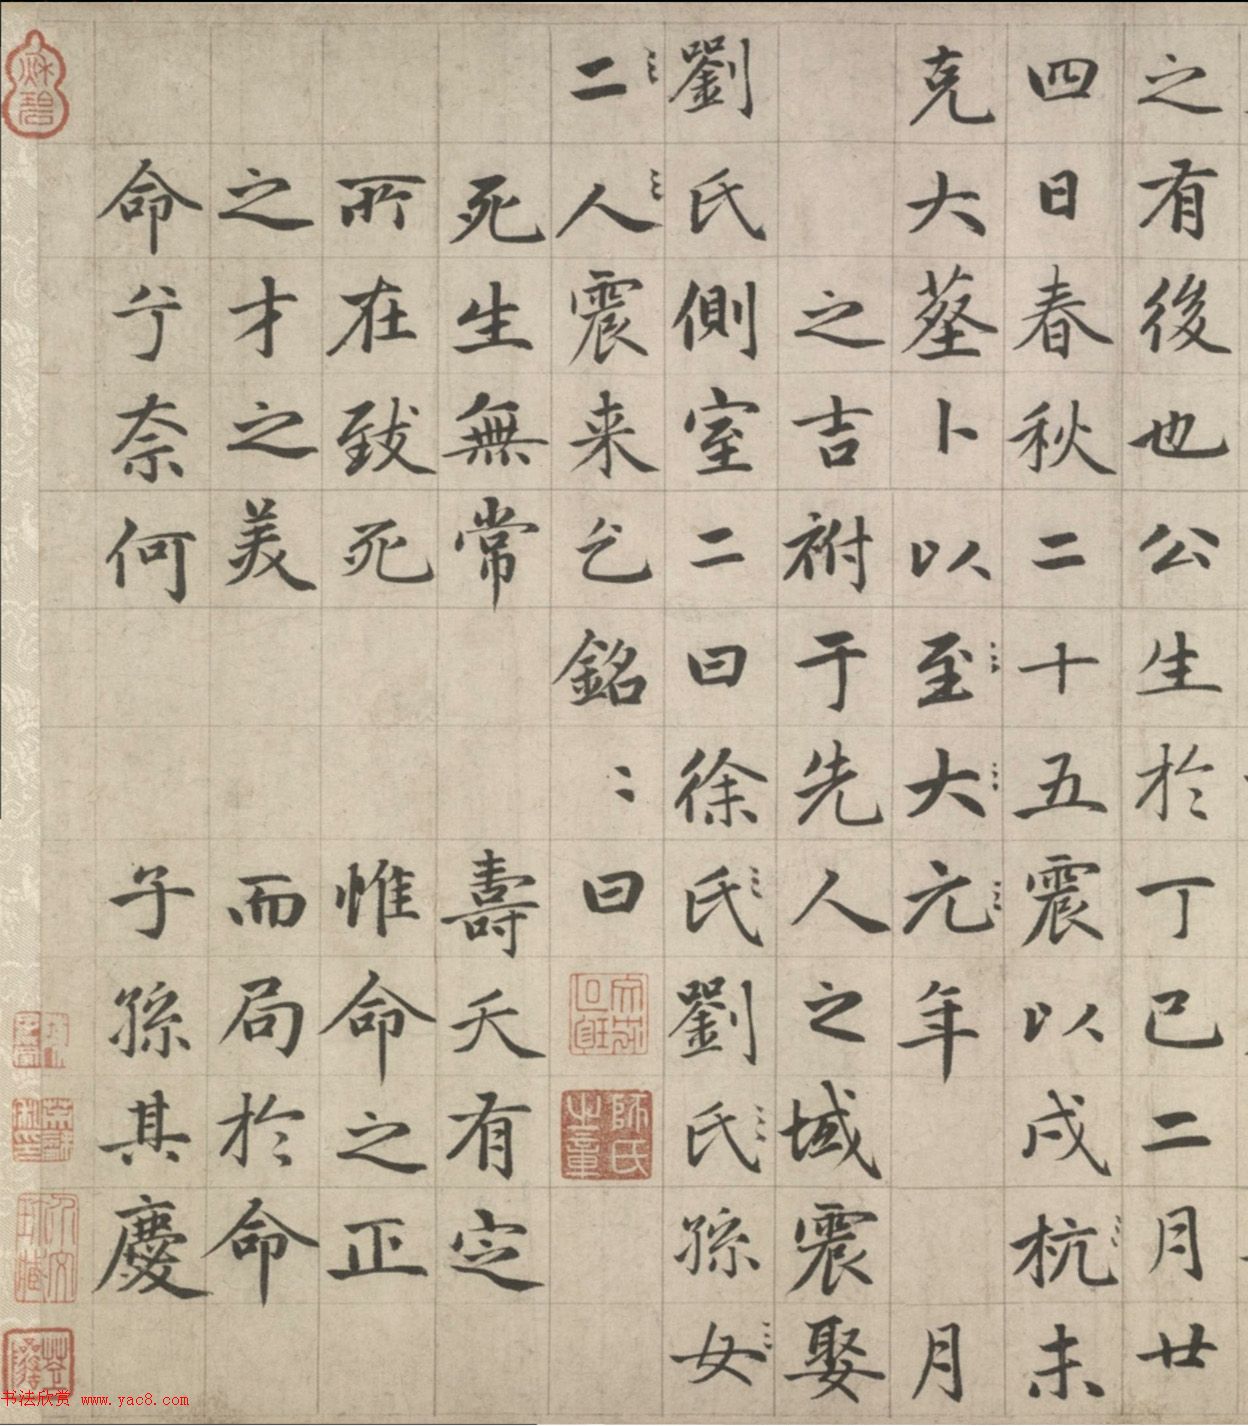 之有後也公生於丁巳二月廿
四日春秋二十五震以戍杭未
克大塟卜以至大元年 月
之吉祔于先人之域震娶
劉氏側室二曰徐氏劉氏孫女
二人震来乞銘〻曰
死生無常 壽夭有定
所在致死 惟命之正
之才之美 而局於命
命兮奈何 子孫其慶
師氏之章
书法欣赏 www.yac8.com